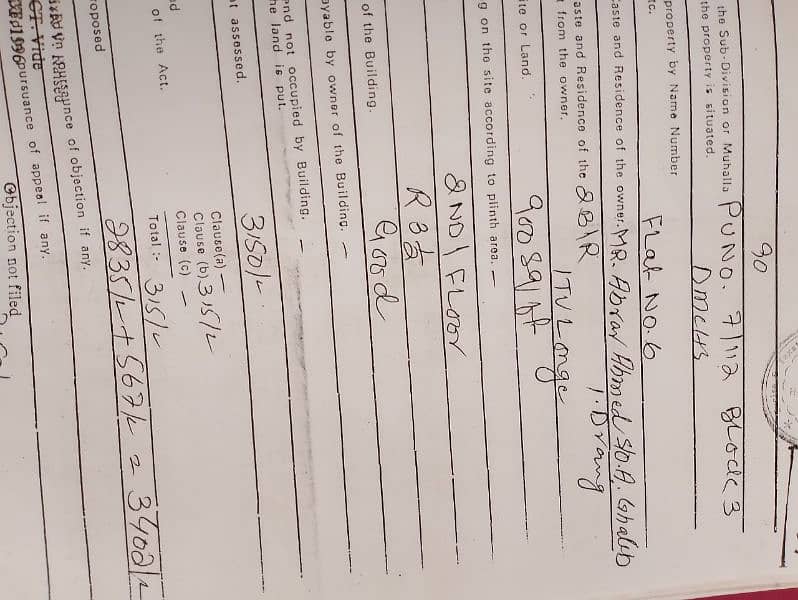 90
the Sub-Division or Muhalla PU No. 7/112 BLOCK 3
the property is situated. DMCHS
property by Name Number
tc. Flat No. 6
aste and Residence of the owner. MR. Abrar Ahmed S/O. A. Ghalib
aste and Residence of the 2 B/R 1. Drang
t from the owner. 1 TV Longe
ite or Land. : 900 Sq/ft
g on the site according to plinth area. —
2ND/ FLOOR
R 8
of the Building. Good
ayable by owner of the Building. —
and not occupied by Building. —
he land is put.
at assessed. 3150/-
Clause(a) —
Clause (b) 315/-
Clause (c) —
ed of the Act. Total :- 315/-
roposed 2835/- + 567/- = 3402/-
of objection if any.
CT Vide
pursuance of appeal if any.
1996
Objection not filed